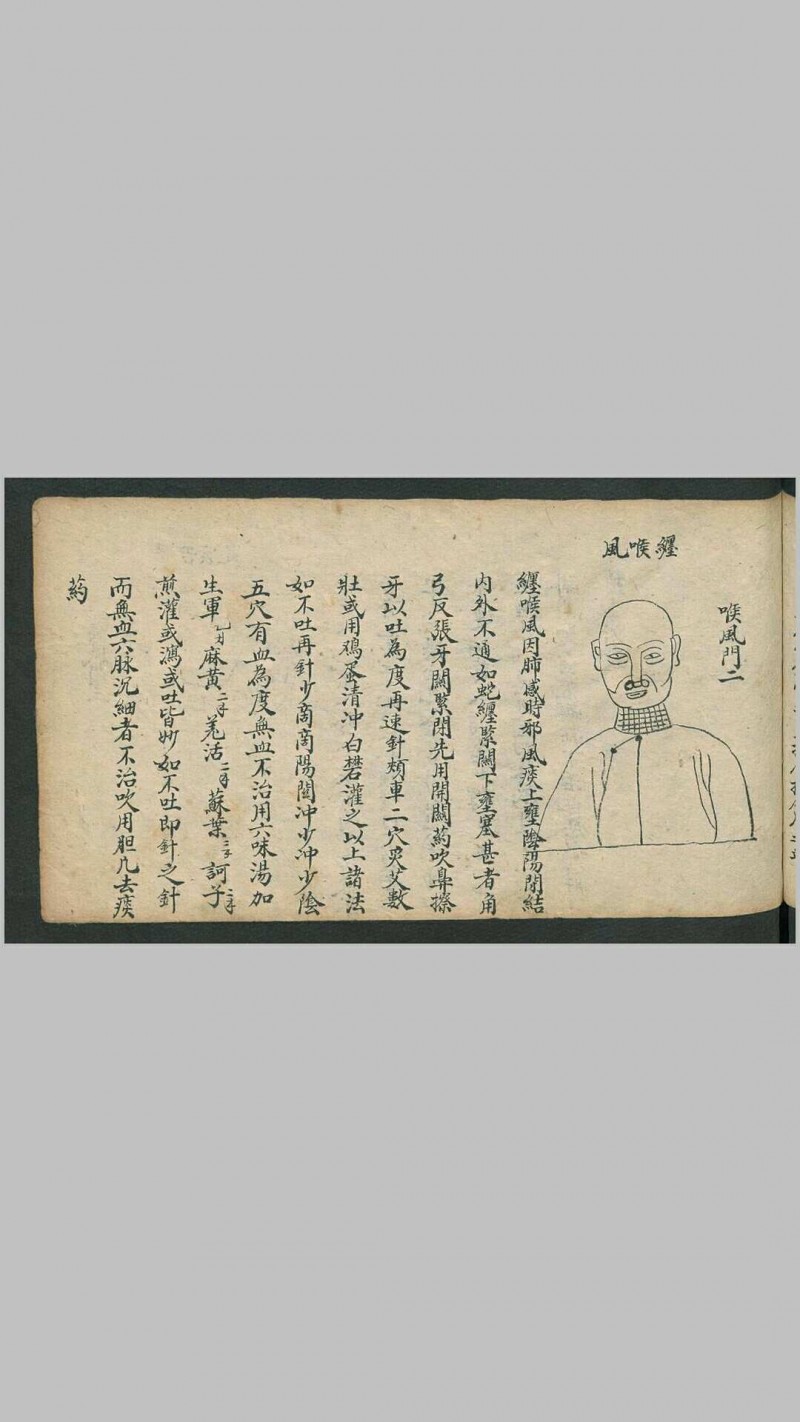 喉風門二
纏喉風
纏喉風因肺感時邪風痰上壅陰陽閉結
內外不通如蛇纏緊關下壅塞甚者角
弓反張牙關緊閉先用開關药吹鼻擦
牙以吐為度再速針頰車二穴灸艾數
壯或用鳮蛋清冲白礬灌之以上諸法
如不吐再針少商商陽関冲少冲少陰
五穴有血為度無血不治用六味湯加
生軍麻黃二羌活二蘇葉二訶子二
煎灌或瀉或吐皆妙如不吐即針之針
而無血六脉沉細者不治吹用胆凡去痰
药